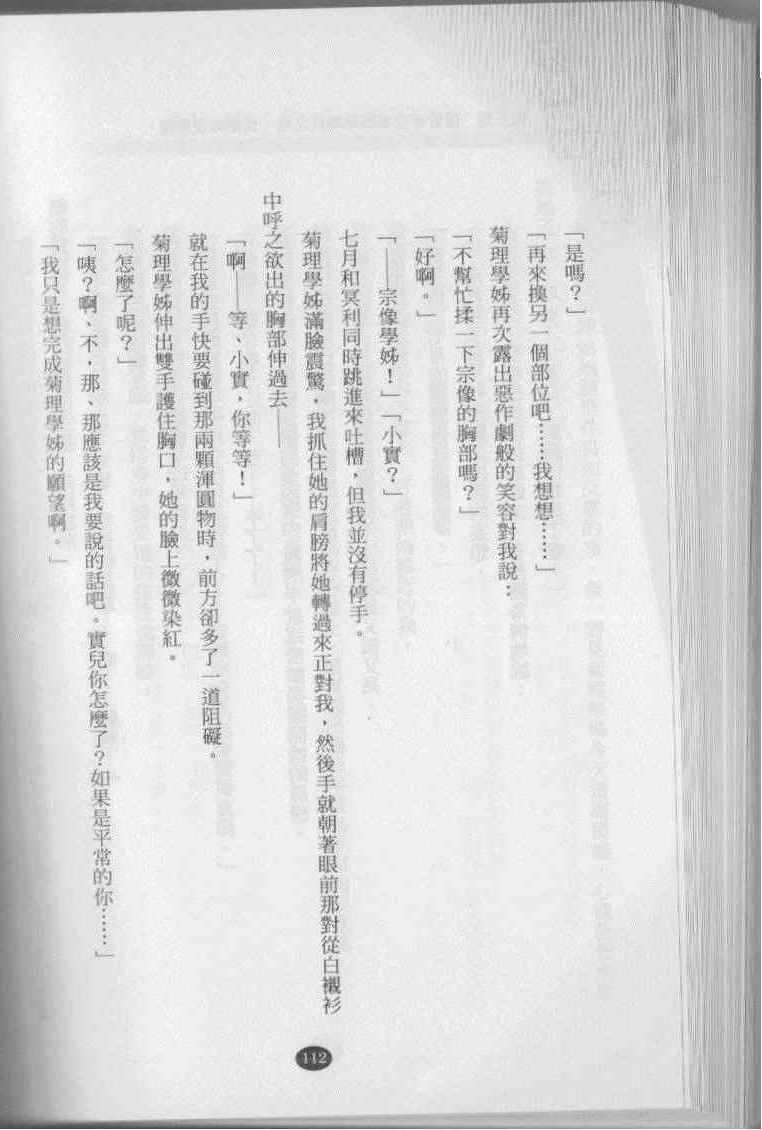 「是嗎？」
「再來換另一個部位吧……我想想……」
菊理學姊再次露出惡作劇般的笑容對我說：
「不幫忙揉一下宗像的胸部嗎？」
「好啊。」
「——宗像學姊！」「小實？」
七月和冥利同時跳進來吐槽，但我並沒有停手。
菊理學姊滿臉震驚，我抓住她的肩膀將她轉過來正對我，然後手就朝著眼前那對從白襯衫
中呼之欲出的胸部伸過去——
「啊——等、小實，你等等！」
就在我的手快要碰到那兩顆渾圓物時，前方卻多了一道阻礙。
菊理學姊伸出雙手護住胸口，她的臉上微微染紅。
「怎麼了呢？」
「咦？啊、不，那、那應該是我要說的話吧。實兒你怎麼了？如果是平常的你……」
「我只是想完成菊理學姊的願望啊。」
112